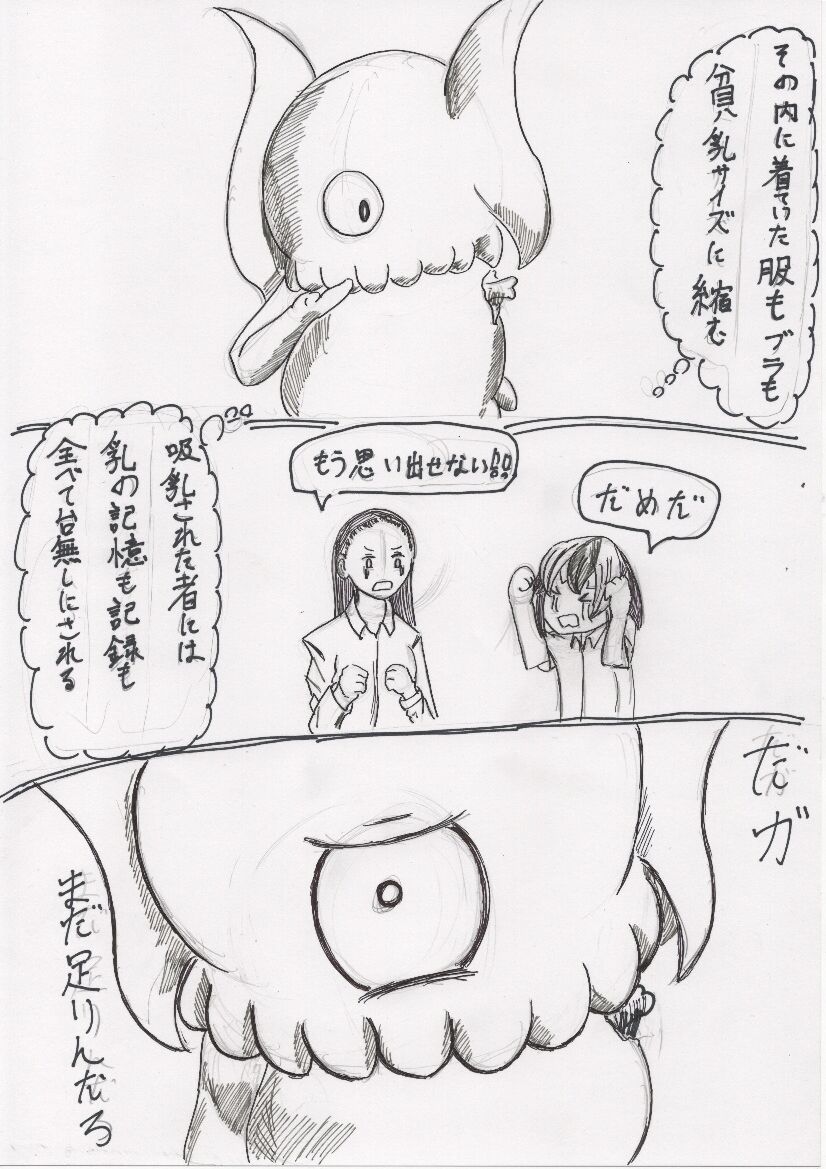 その内に着ていた服もブラも
貧乳サイズに縮む
だめだ
もう思い出せない!!
吸乳された者には
乳の記憶も記録も
全べて台無しにされる
だガ
まだ足りんだろ